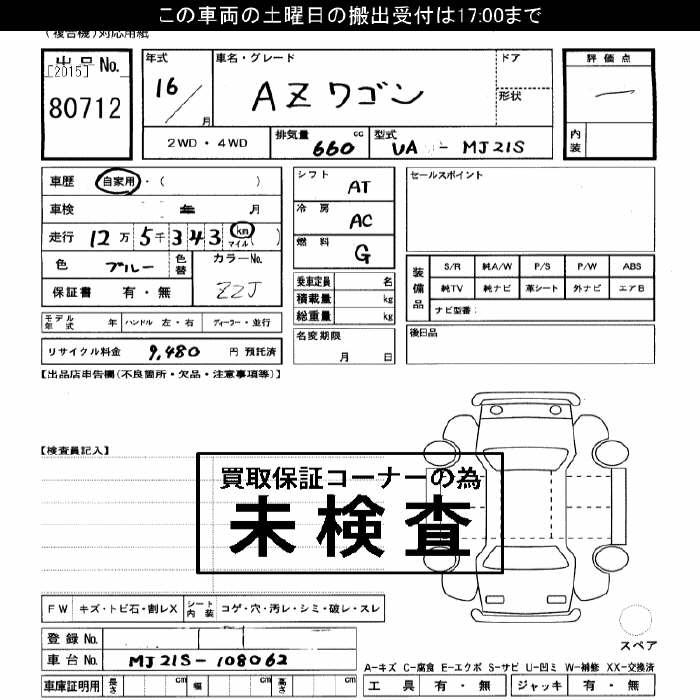 この車両の土曜日の搬出受付は17:00まで
(複合機)対応用紙
出品No.
[2015]
80712
年式 16/ 月
車名・グレード AZワゴン
ドア
形状
評価点
内装
2WD・4WD
排気量 660 cc
型式 UA - MJ21S
車歴 自家用・( )
車検 年 月
走行 12万5千343 km マイル ( )
色 ブルー 色替
カラーNo. ZZJ
保証書 有・無
シフト AT
冷房 AC
燃料 G
乗車定員 名
積載量 kg
総重量 kg
セールスポイント
装備品
S/R 純A/W P/S P/W ABS
純TV 純ナビ 革シート 外ナビ エアB
ナビ型番:
モデル年式 年 ハンドル 左・右 ディーラー・並行
リサイクル料金 9,480 円 預託済
名変期限 月 日
後日品
【出品店申告欄(不良箇所・欠品・注意事項等)】
【検査員記入】
買取保証コーナーの為
未検査
FW キズ・トビ石・割レX シート内装 コゲ・穴・汚レ・シミ・破レ・スレ
登録No.
車台No. MJ21S-108062
車庫証明用 長さ cm 幅 cm 高さ cm
スペア
A-キズ C-腐食 E-エクボ S-サビ U-凹ミ W-補修 XX-交換済
工具 有・無 ジャッキ 有・無